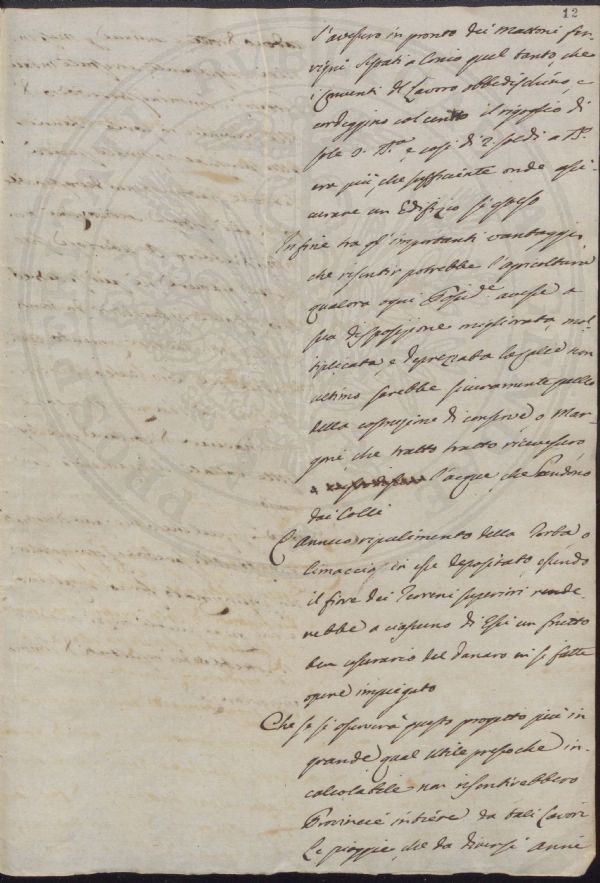 12
s'avessero in pronto dei Mattoni fer-
rigni segati a Conio quel tanto, che
i Conventi del Lavoro obbedischino, e
cordeggino col centro il rigoglio di
sole 9. e così di 2 soldi a
era più, che sufficiente onde assi-
curare un Edifizio sì queso
Infine tra gl'importanti vantaggi,
che risentir potrebbe l'agricoltura
qualora ogni Possid.e avesse a
sua disposizione migliorata, mol-
tiplicata, e deprezzata la Calce non
ultimo sarebbe sicuramente quello
della costruzione di conserve o Mar-
goni, che tratto tratto ricevessero
l'acque, che Pendono
dai Colli
L'annuo ripulimento della Torba, o
limaccio, in esse depositato, essendo
il fiore dei Terreni superiori rende-
rebbe a ciascuno di Essi un frutto
ben usurario del danaro in sì fatte
opere impiegato
Che se si osserverà questo progetto più in
grande qual utile presso che in-
calcolabile non risentirebbero
Provincie intiere da tali Lavori
Le pioggie, che da diversi Anni